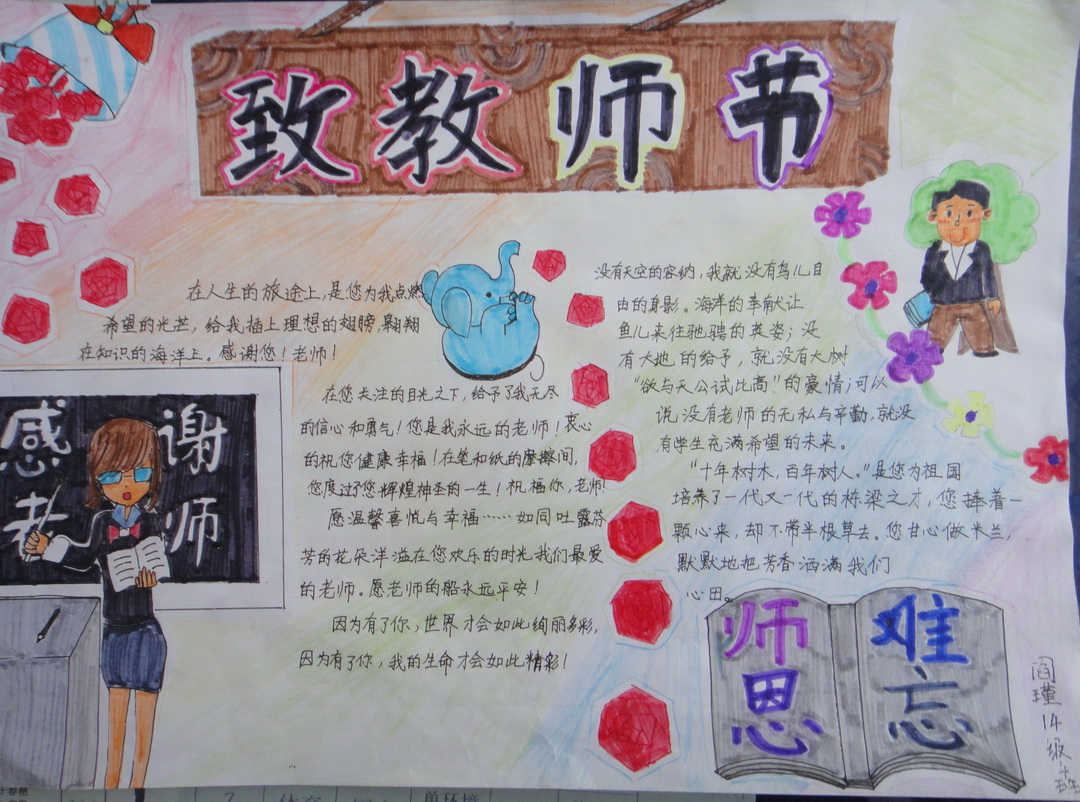 致教师节
在人生的旅途上,是您为我点燃
希望的光芒，给我插上理想的翅膀,翱翔
在知识的海洋上。感谢您！老师！
在您关注的目光之下,给予了我无尽
的信心和勇气！您是我永远的老师！衷心
的祝您健康幸福！在笔和纸的摩擦间,
您度过了您辉煌神圣的一生！祝福你,老师!
愿温馨喜悦与幸福……如同吐露芬
芳的花朵洋溢在您欢乐的时光我们最爱
的老师。愿老师的船永远平安！
因为有了你,世界才会如此绚丽多彩,
因为有了你，我的生命才会如此精彩！
没有天空的容纳，我就没有鸟儿自
由的身影。海洋的奉献让
鱼儿来往驰骋的英姿；没
有大地的给予，就没有大树
“欲与天公试比高”的豪情;可以
说没有老师的无私与辛勤,就没
有学生充满希望的未来。
“十年树木，百年树人。”是您为祖国
培养了一代又一代的栋梁之才，您捧着一
颗心来，却不带半根草去。您甘心做米兰,
默默地把芳香洒满我们
心田。
感谢
老师
师恩
难忘
阎瑾14级